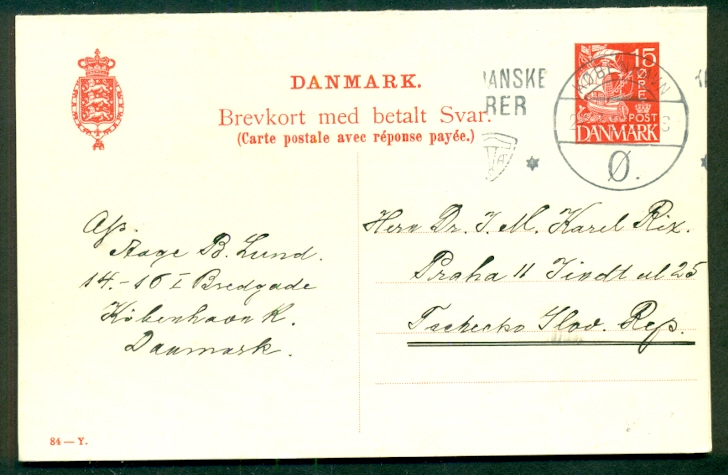 DANMARK.
Brevkort med betalt Svar.
(Carte postale avec réponse payée.)
ANSKE
RER
KØBENHAVN
Ø.
15
ØRE
POST
DANMARK
Afs.
Aage B. Lund.
14.-16 I Bredgade
København K.
Danmark.
Herrn Dr. I. M. Karel Rix.
Praha II Jindt ul 25
Tschecko Slov. Rep.
84 — Y.